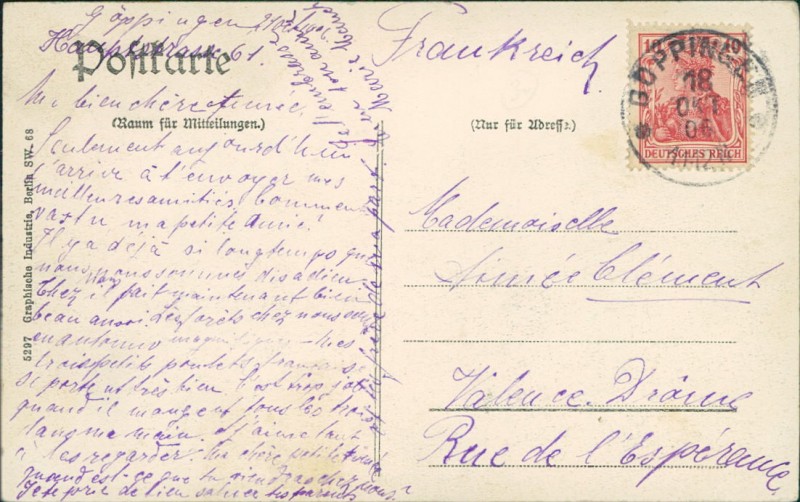 Göppingen
Hauptstrasse 61.
Postkarte
Ma bien chère Aimée.
(Raum für Mitteilungen.)
Seulement aujourd'hui
j'arrive à t'envoyer mes
meilleures amitiés. Comment
vas tu ma petite Amie?
Il y a déjà si longtemps que
nous nous sommes dis adieu.
Chez il fait maintenant bien
beau aussi. Les forêts chez nous
en automne magnifiques
trois petits poulets français
se portent très bien. C'est trop joli
quand il mangent tous les trois
dans ma main. J'aime tant
à les regarder. Ma chère petite
quand est-ce que tu viendras chez nous?
Je te prie de bien saluer tes parents
de ma part
Frankreich.
(Nur für Adresse.)
10 10
DEUTSCHES REICH
GÖPPINGEN
18
OKT
06
Mademoiselle
Aimée Clément
Valence. Drôme
Rue de l'Espérance
5297 Graphische Industrie, Berlin SW. 68